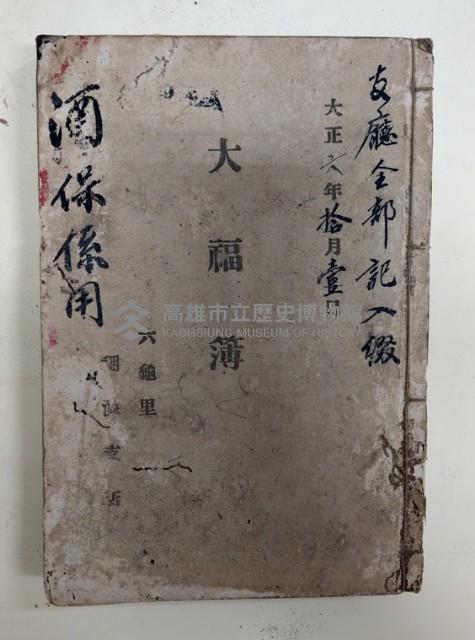 支廳全部記入綴
大正六年拾月壹日
大福簿
六龜里
支店
酒保係用
高雄市立歷史博物館
KAOHSIUNG MUSEUM OF HISTORY